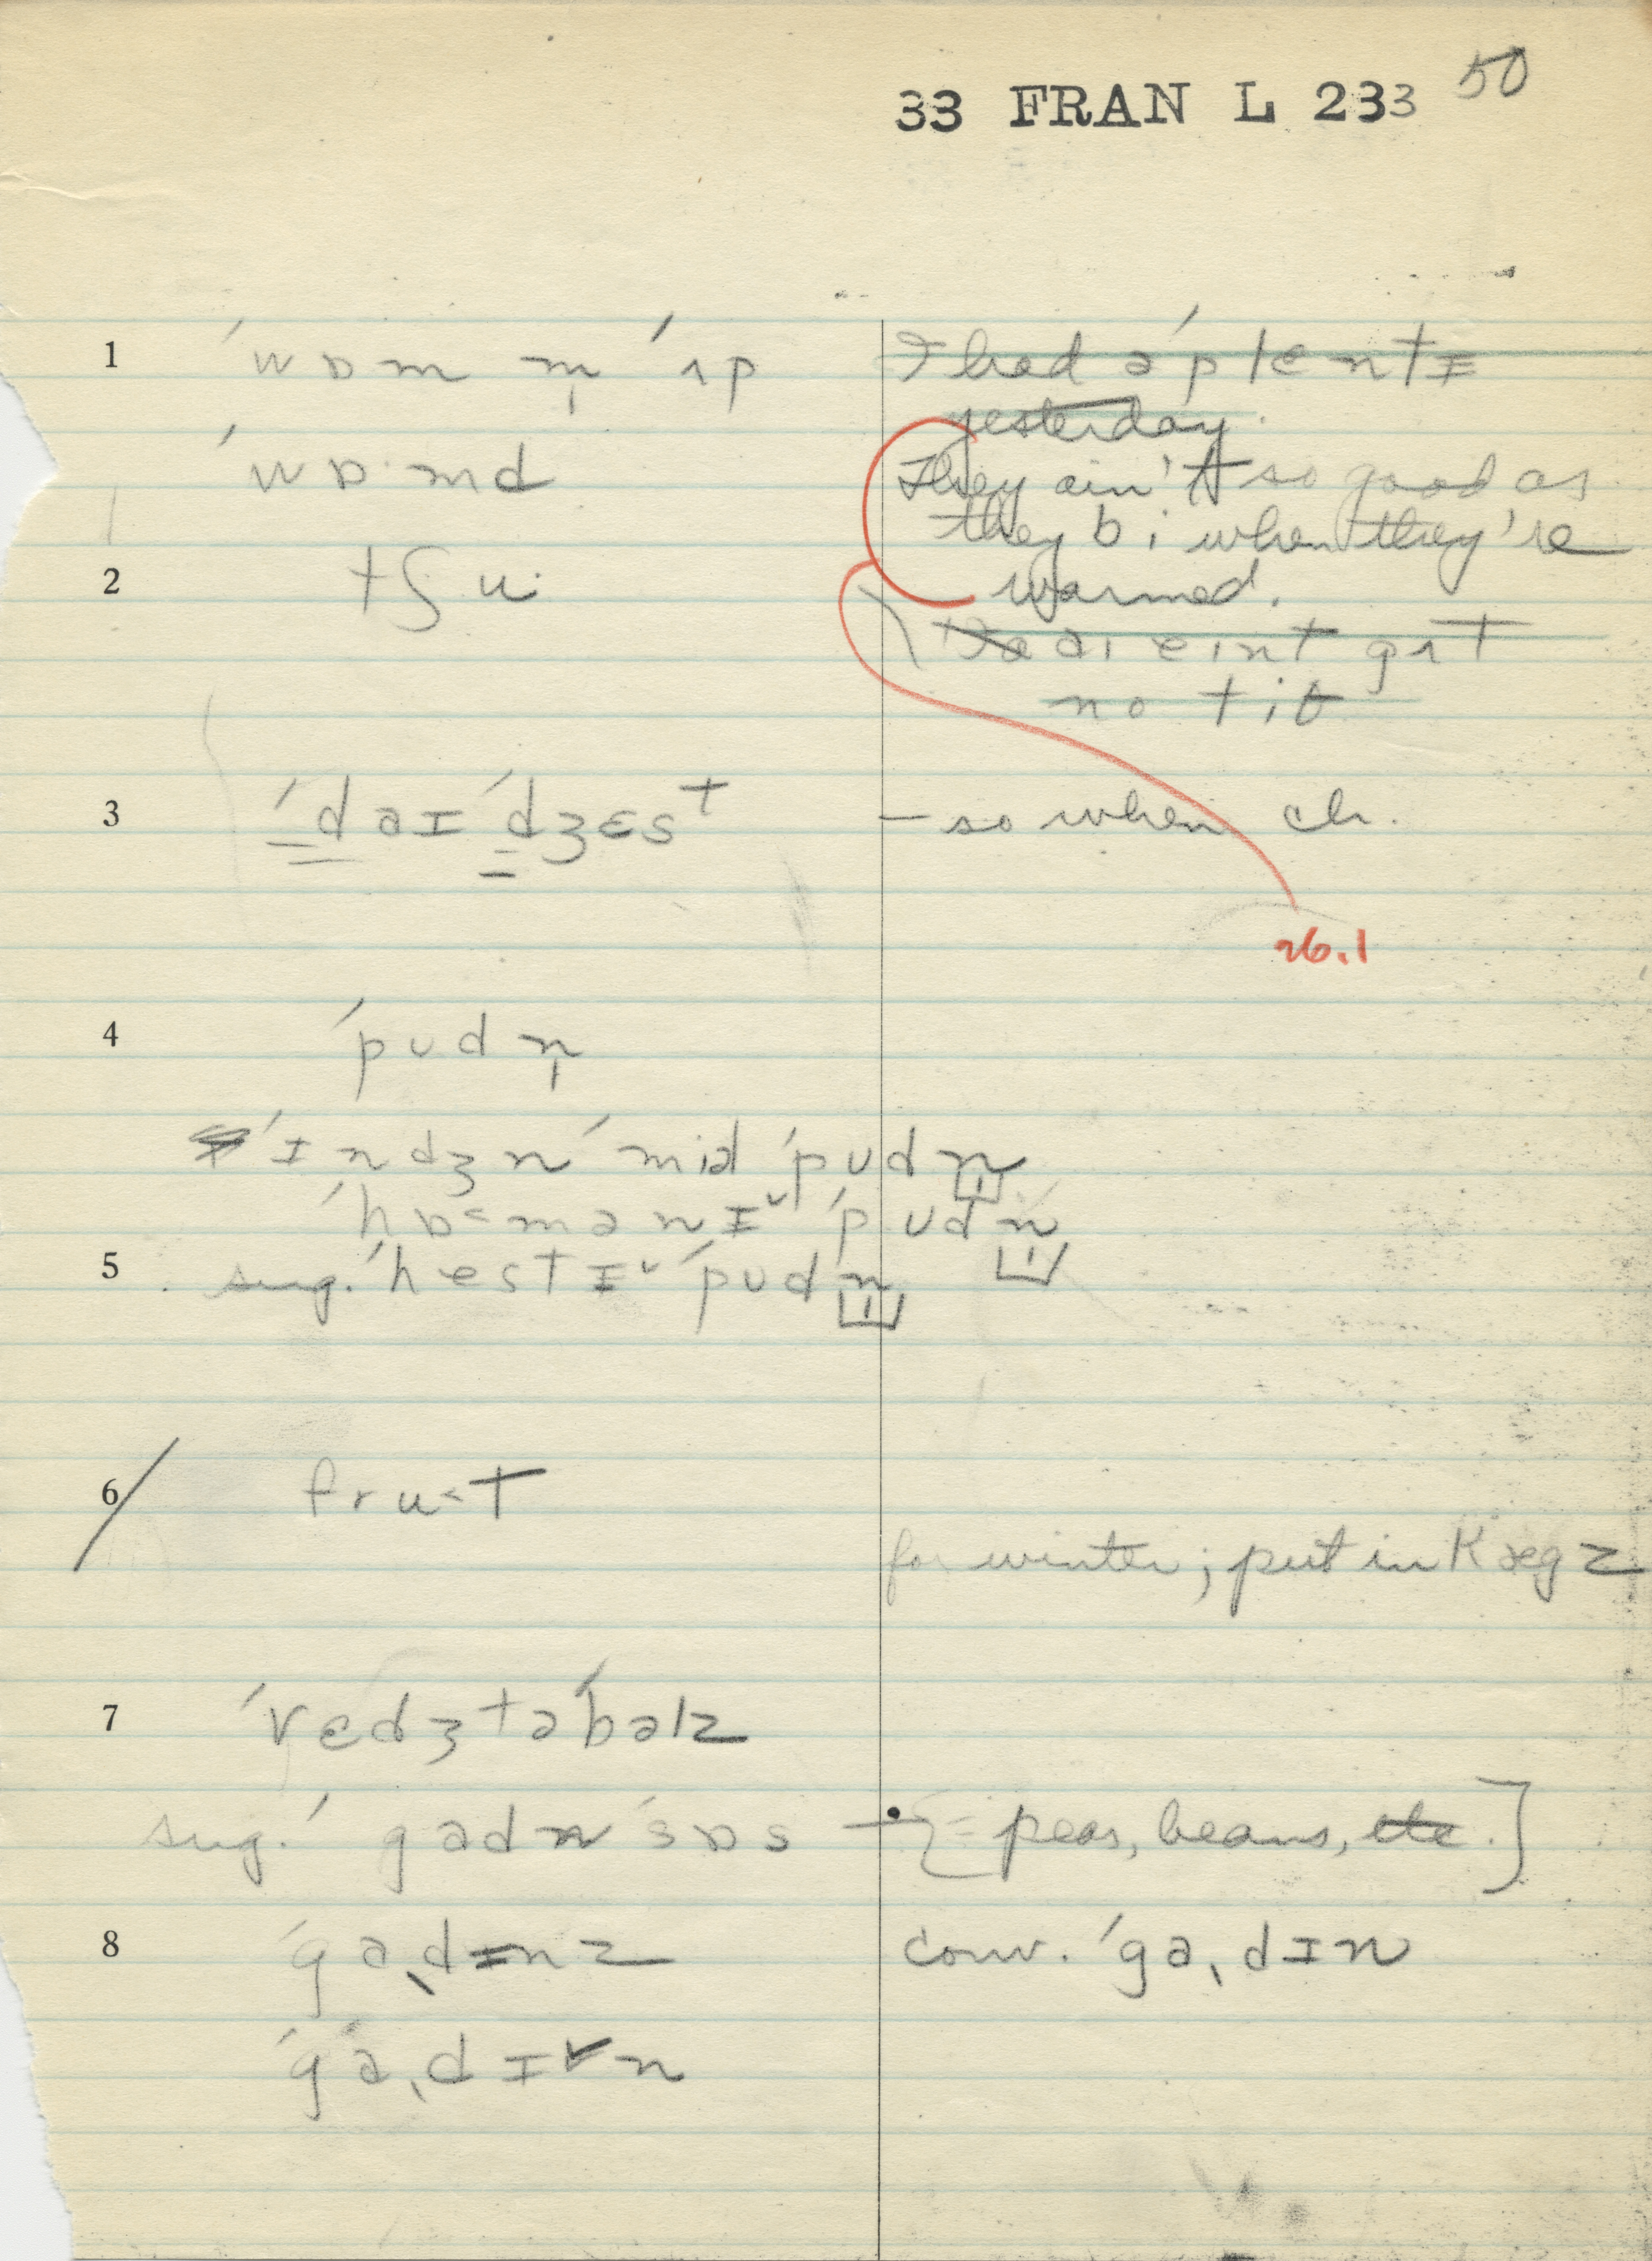 33 FRAN L 233 50
1 ˈwɒm m̩ ˈʌp I had əˈplentɪ
yesterday.
ˈwɒ·md They ain't so good as
they bi when they're
2 tʃu· warmed.
aɪ eint gʌt
no tiθ
3 ˈdaɪˈdʒɛst – so when ch.
26.1
4 ˈpʊdn̩
ˈɪndʒn ˈmiəl ˈpʊdn̩
ˈhɒ˂mənɪ˅ ˈpʊdn̩
5 sug. ˈhestɪ˅ ˈpʊdn̩
6 fru˂t
for winter; put in kægz
7 ˈvɛdʒtəˈbəlz
sug. ˈgadn ˈsɒs – [= peas, beans, etc.]
8 ˈgaˌdɪnz conv. ˈgaˌdɪn
ˈgaˌdɪ˅n